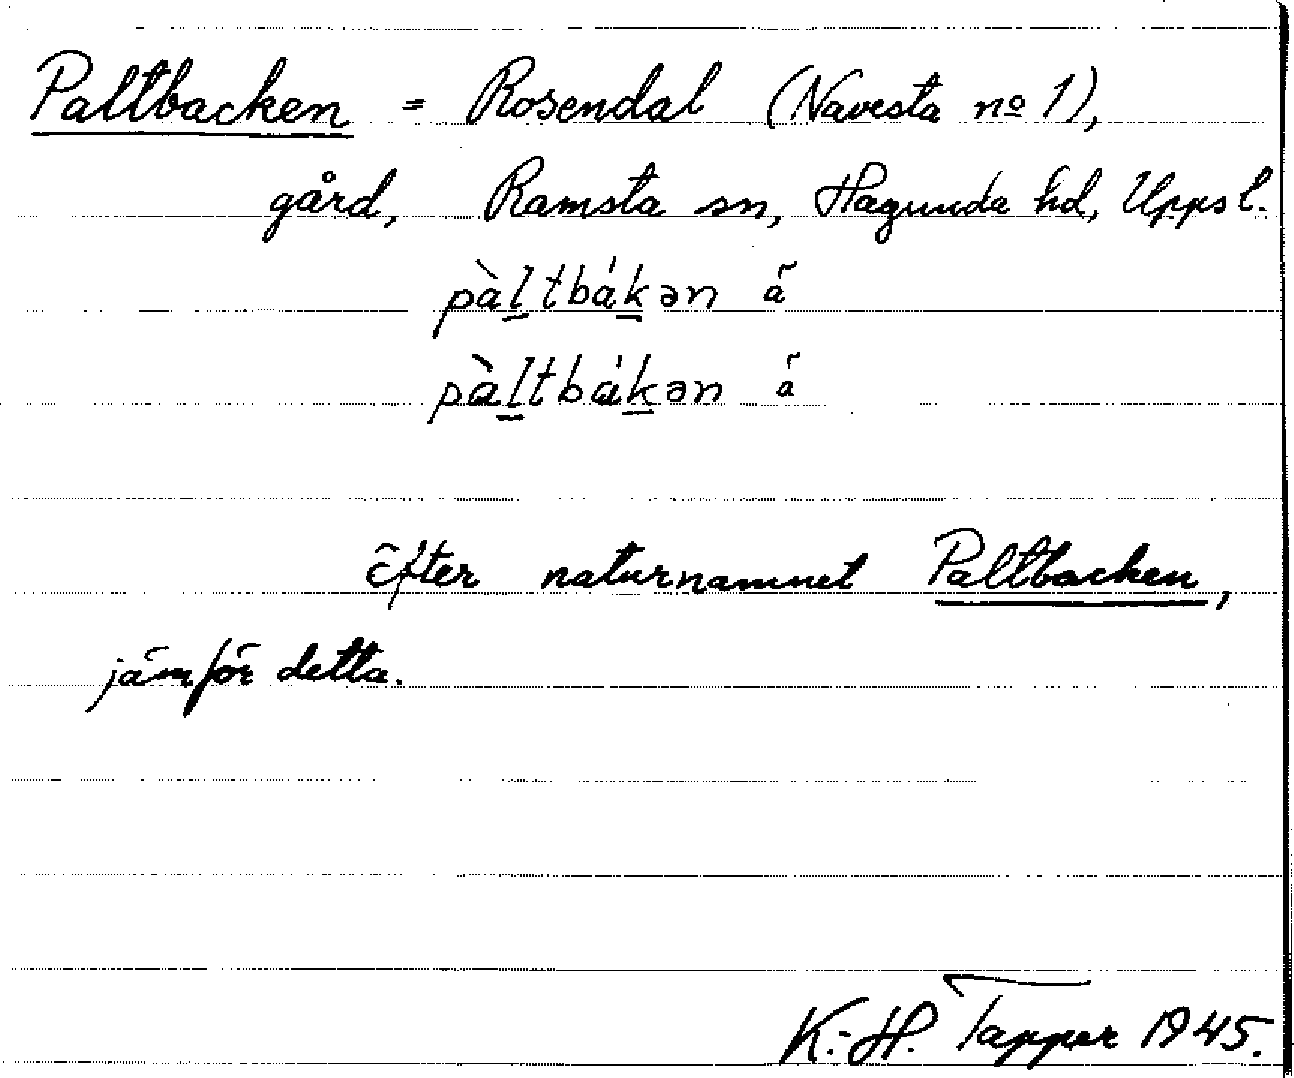 Paltbacken = Rosendal (Navesta nº 1),
gård, Ramsta sn, Hagunda hd, Uppsl.
pàl̲tbák̲ən á̃
pàl̲tbák̲ən á
Efter naturnamnet Paltbacken,
jämför detta.
K.-H. Tapper 1945.